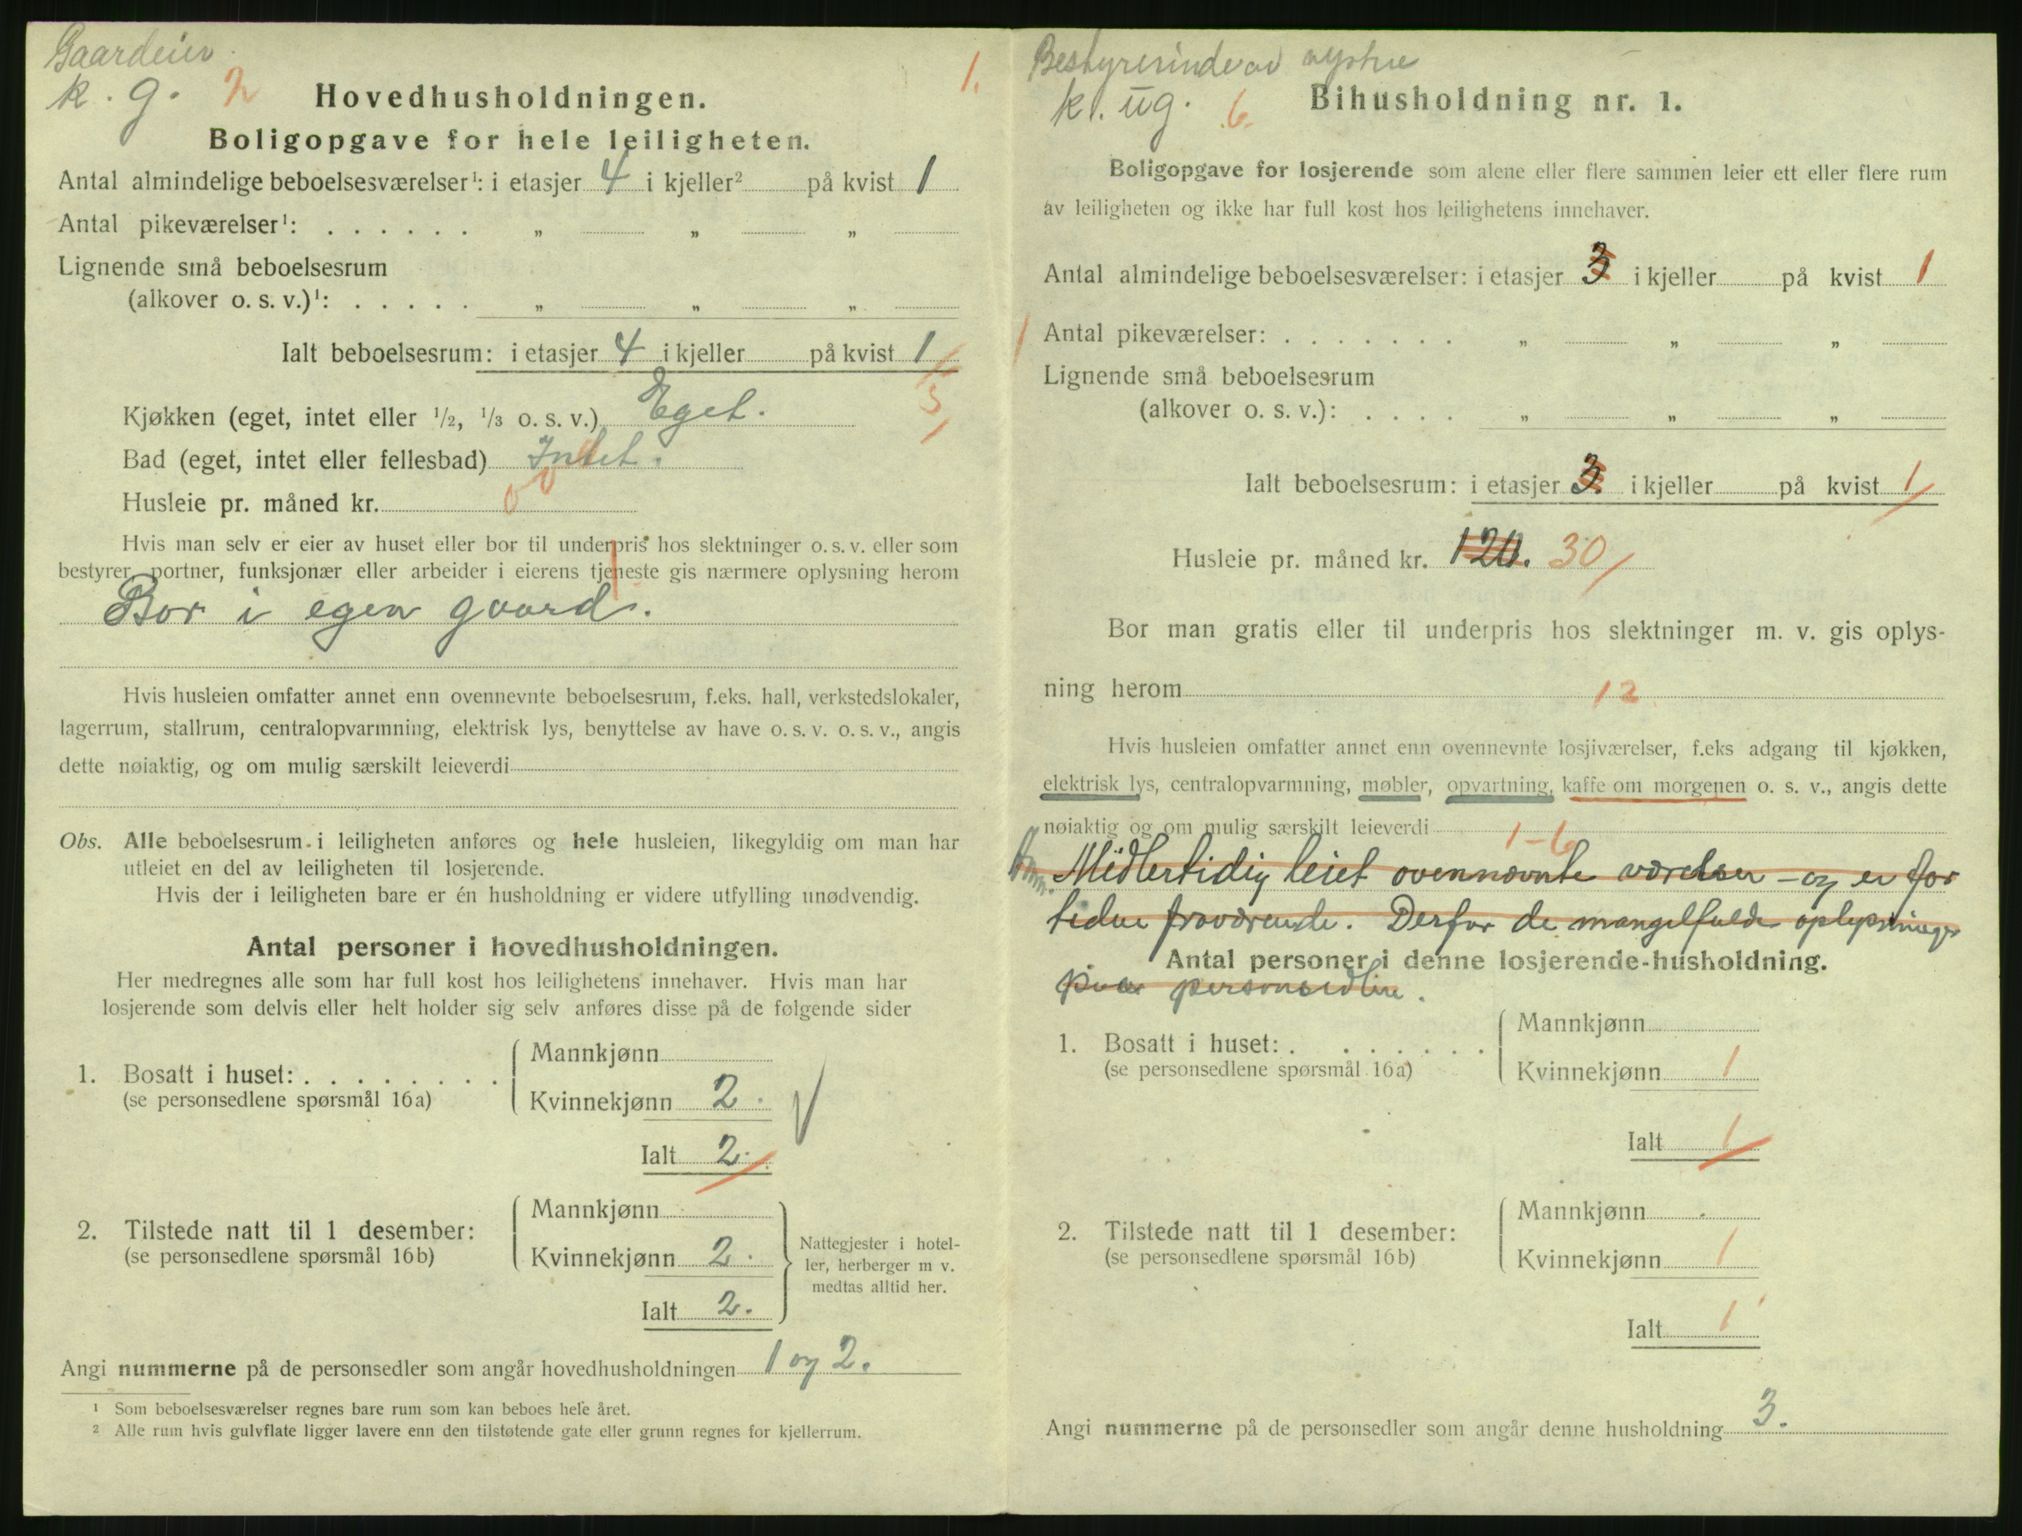 Gaardeier
k. g. 2
1.
Hovedhusholdningen.
Boligopgave for hele leiligheten.
Antal almindelige beboelsesværelser¹: i etasjer 4 i kjeller² på kvist 1
Antal pikeværelser¹: . . . . . . „ „ „
Lignende små beboelsesrum
(alkover o. s. v.)¹: . . . . . „ „ „
Ialt beboelsesrum: i etasjer 4 i kjeller på kvist 1
5
Kjøkken (eget, intet eller 1/2, 1/3 o. s. v.) Eget.
Bad (eget, intet eller fellesbad) Intet. 0
Husleie pr. måned kr. 0
Hvis man selv er eier av huset eller bor til underpris hos slektninger o. s. v. eller som
bestyrer, portner, funksjonær eller arbeider i eierens tjeneste gis nærmere oplysning herom
Bor i egen gaard.
Hvis husleien omfatter annet enn ovennevnte beboelsesrum, f.eks. hall, verkstedslokaler,
lagerrum, stallrum, centralopvarmning, elektrisk lys, benyttelse av have o. s. v. o. s. v., angis
dette nøiaktig, og om mulig særskilt leieverdi
Obs. Alle beboelsesrum i leiligheten anføres og hele husleien, likegyldig om man har
utleiet en del av leiligheten til losjerende.
Hvis der i leiligheten bare er én husholdning er videre utfylling unødvendig.
Antal personer i hovedhusholdningen.
Her medregnes alle som har full kost hos leilighetens innehaver. Hvis man har
losjerende som delvis eller helt holder sig selv anføres disse på de følgende sider
Mannkjønn
1. Bosatt i huset: . . . . . . . .
(se personsedlene spørsmål 16a)
Kvinnekjønn 2.
Ialt 2.
Mannkjønn
2. Tilstede natt til 1 desember:
(se personsedlene spørsmål 16b)
Kvinnekjønn 2.
Ialt 2.
Nattegjester i hotel-
ler, herberger m v.
medtas alltid her.
Angi nummerne på de personsedler som angår hovedhusholdningen 1 og 2.
¹ Som beboelsesværelser regnes bare rum som kan beboes hele året.
² Alle rum hvis gulvflate ligger lavere enn den tilstøtende gate eller grunn regnes for kjellerrum.
Bestyrerinde av
k. ug. 6.
Bihusholdning nr. 1.
Boligopgave for losjerende som alene eller flere sammen leier ett eller flere rum
av leiligheten og ikke har full kost hos leilighetens innehaver.
Antal almindelige beboelsesværelser: i etasjer 3 i kjeller på kvist 1
1 Antal pikeværelser: . . . . . . . „ „ „
Lignende små beboelsesrum
(alkover o. s. v.): . . . . „ „ „
Ialt beboelsesrum: i etasjer 3. i kjeller på kvist 1
Husleie pr. måned kr. 120. 30
Bor man gratis eller til underpris hos slektninger m. v. gis oplys-
ning herom 12
Hvis husleien omfatter annet enn ovennevnte losjiværelser, f.eks adgang til kjøkken,
elektrisk lys, centralopvarmning, møbler, opvartning, kaffe om morgenen o. s. v., angis dette
nøiaktig og om mulig særskilt leieverdi 1-6
Anm. Midlertidig leiet ovennævnte værelser – og er for
tiden fraværende. Derfor de mangelfulde oplysninger
paa personsedlene.
Antal personer i denne losjerende-husholdning.
Mannkjønn
1. Bosatt i huset: . . . . . . .
(se personsedlene spørsmål 16a)
Kvinnekjønn 1
Ialt 1
Mannkjønn
2. Tilstede natt til 1 desember:
(se personsedlene spørsmål 16b)
Kvinnekjønn 1
Ialt 1
Angi nummerne på de personsedler som angår denne husholdning 3.